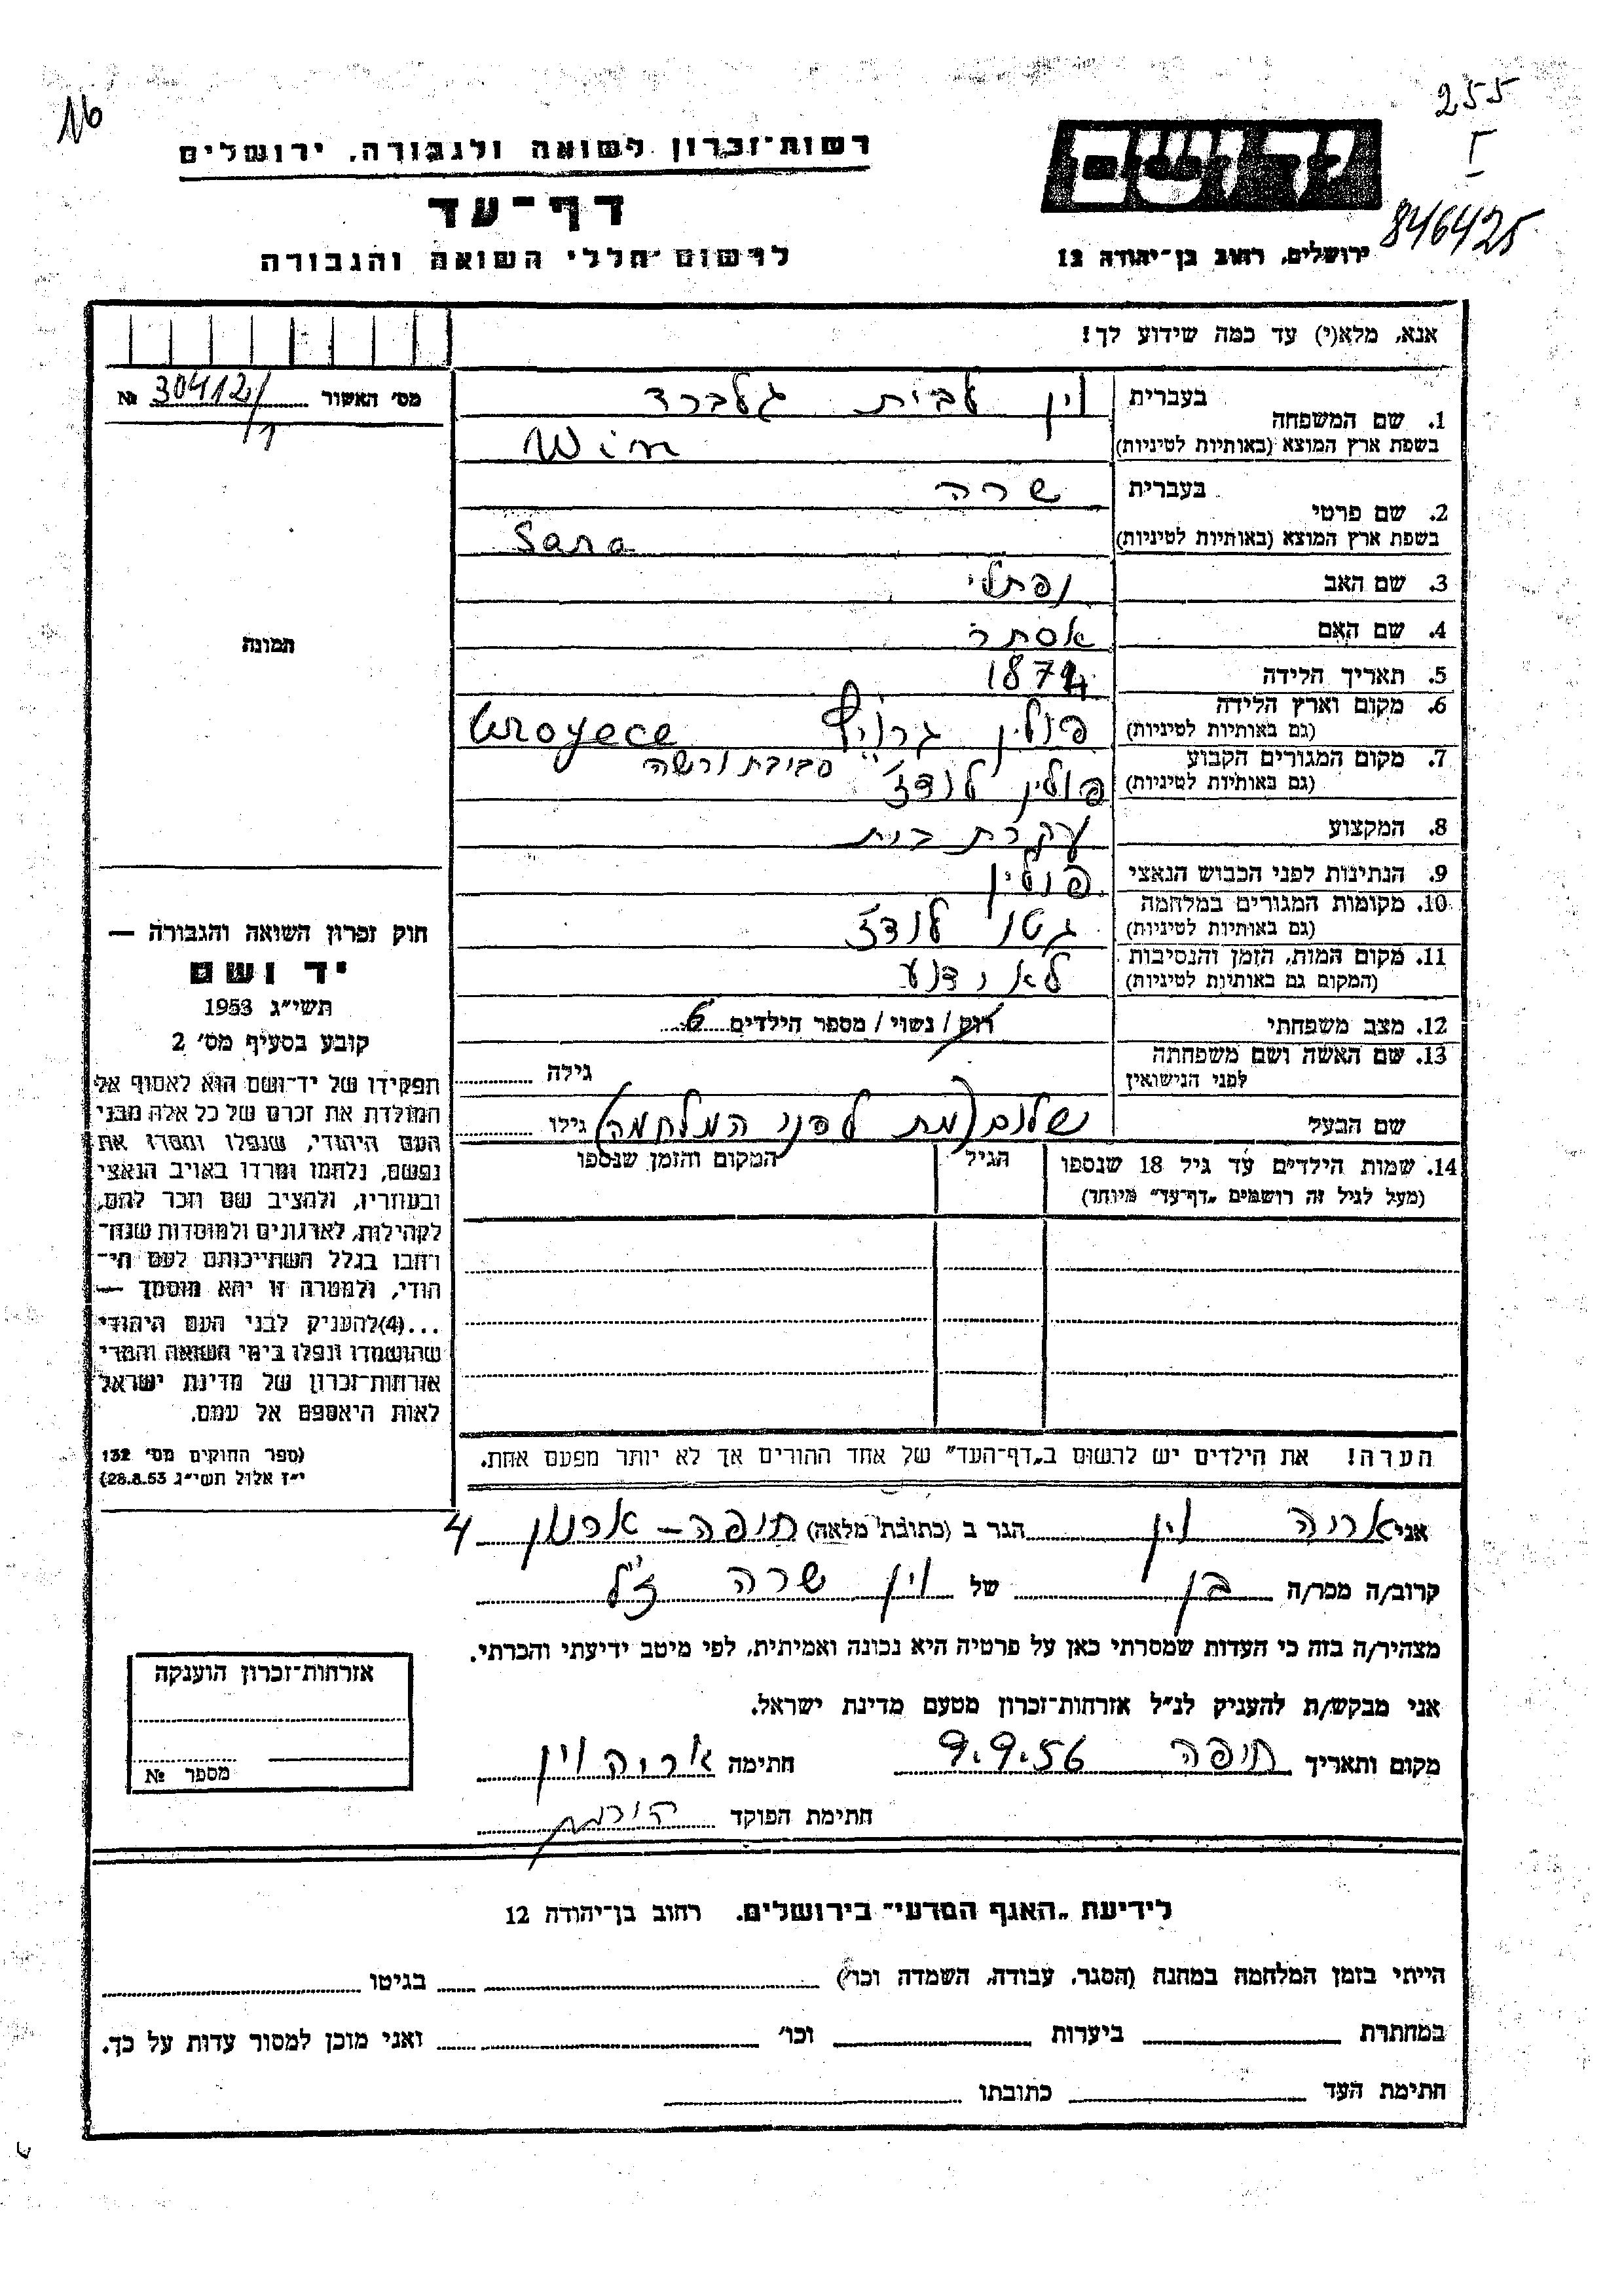 16
255
I
846425
רשות־זכרון לשואה ולגבורה, ירושלים
דף־עד
לרשום חללי השואה והגבורה
יד ושם
ירושלים, רחוב בן־יהודה 12
אנא, מלא(י) עד כמה שידוע לך!
מס׳ האשור 30412/1 №
תמונה
1. שם המשפחה בעברית וין לבית גלברד
בשפת ארץ המוצא (באותיות לטיניות) Win
2. שם פרטי בעברית שרה
בשפת ארץ המוצא (באותיות לטיניות) Sara
3. שם האב נפתלי
4. שם האם אסתר
5. תאריך הלידה 1874
6. מקום וארץ הלידה (גם באותיות לטיניות) פולין
סביבת ורשה
7. מקום המגורים הקבוע (גם באותיות לטיניות) פולין לודז׳
8. המקצוע עקרת בית
9. הנתינות לפני הכבוש הנאצי פולין
10. מקומות המגורים במלחמה (גם באותיות לטיניות) גטו לודז׳
11. מקום המות, הזמן והנסיבות (המקום גם באותיות לטיניות) לא ידוע
12. מצב משפחתי רווק / נשוי / מספר הילדים 6
13. שם האשה ושם משפחתה לפני הנישואין גילה
שם הבעל שלום (מת לפני המלחמה) גילו
14. שמות הילדים עד גיל 18 שנספו
(מעל לגיל זה רושמים „דף־עד״ מיוחד)
הגיל
המקום והזמן שנספו
הערה! את הילדים יש לרשום ב„דף־העד״ של אחד ההורים אך לא יותר מפעם אחת.
חוק זכרון השואה והגבורה —
יד ושם
תשי״ג 1953
קובע בסעיף מס׳ 2
תפקידו של יד־ושם הוא לאסוף אל
המולדת את זכרם של כל אלה מבני
העם היהודי, שנפלו ומסרו את
נפשם, נלחמו ומרדו באויב הנאצי
ובעוזריו, ולהציב שם וזכר להם,
לקהילות, לארגונים ולמוסדות שנח־
רבו בגלל השתייכותם לעם הי־
הודי, ולמטרה זו יהא מוסמך —
...(4)להעניק לבני העם היהודי
שהושמדו ונפלו בימי השואה והמרי
אזרחות־זכרון של מדינת ישראל
לאות היאספם אל עמם.
(ספר החוקים מס׳ 132
י״ז אלול תשי״ג 28.8.53)
אני אריה וין הגר ב (כתובת מלאה) חיפה – ארנון 4
קרוב/ה מכר/ה בן של וין שרה ז״ל
מצהיר/ה בזה כי העדות שמסרתי כאן על פרטיה היא נכונה ואמיתית, לפי מיטב ידיעתי והכרתי.
אני מבקש/ת להעניק לנ״ל אזרחות־זכרון מטעם מדינת ישראל.
מקום ותאריך חיפה 9.9.56 חתימה אריה וין
חתימת הפוקד
אזרחות־זכרון הוענקה
מספר №
לידיעת „האגף המדעי״ בירושלים. רחוב בן־יהודה 12
הייתי בזמן המלחמה במחנה (הסגר, עבודה, השמדה וכו׳) בגיטו
במחתרת ביערות וכו׳ ואני מוכן למסור עדות על כך.
חתימת העד כתובתו